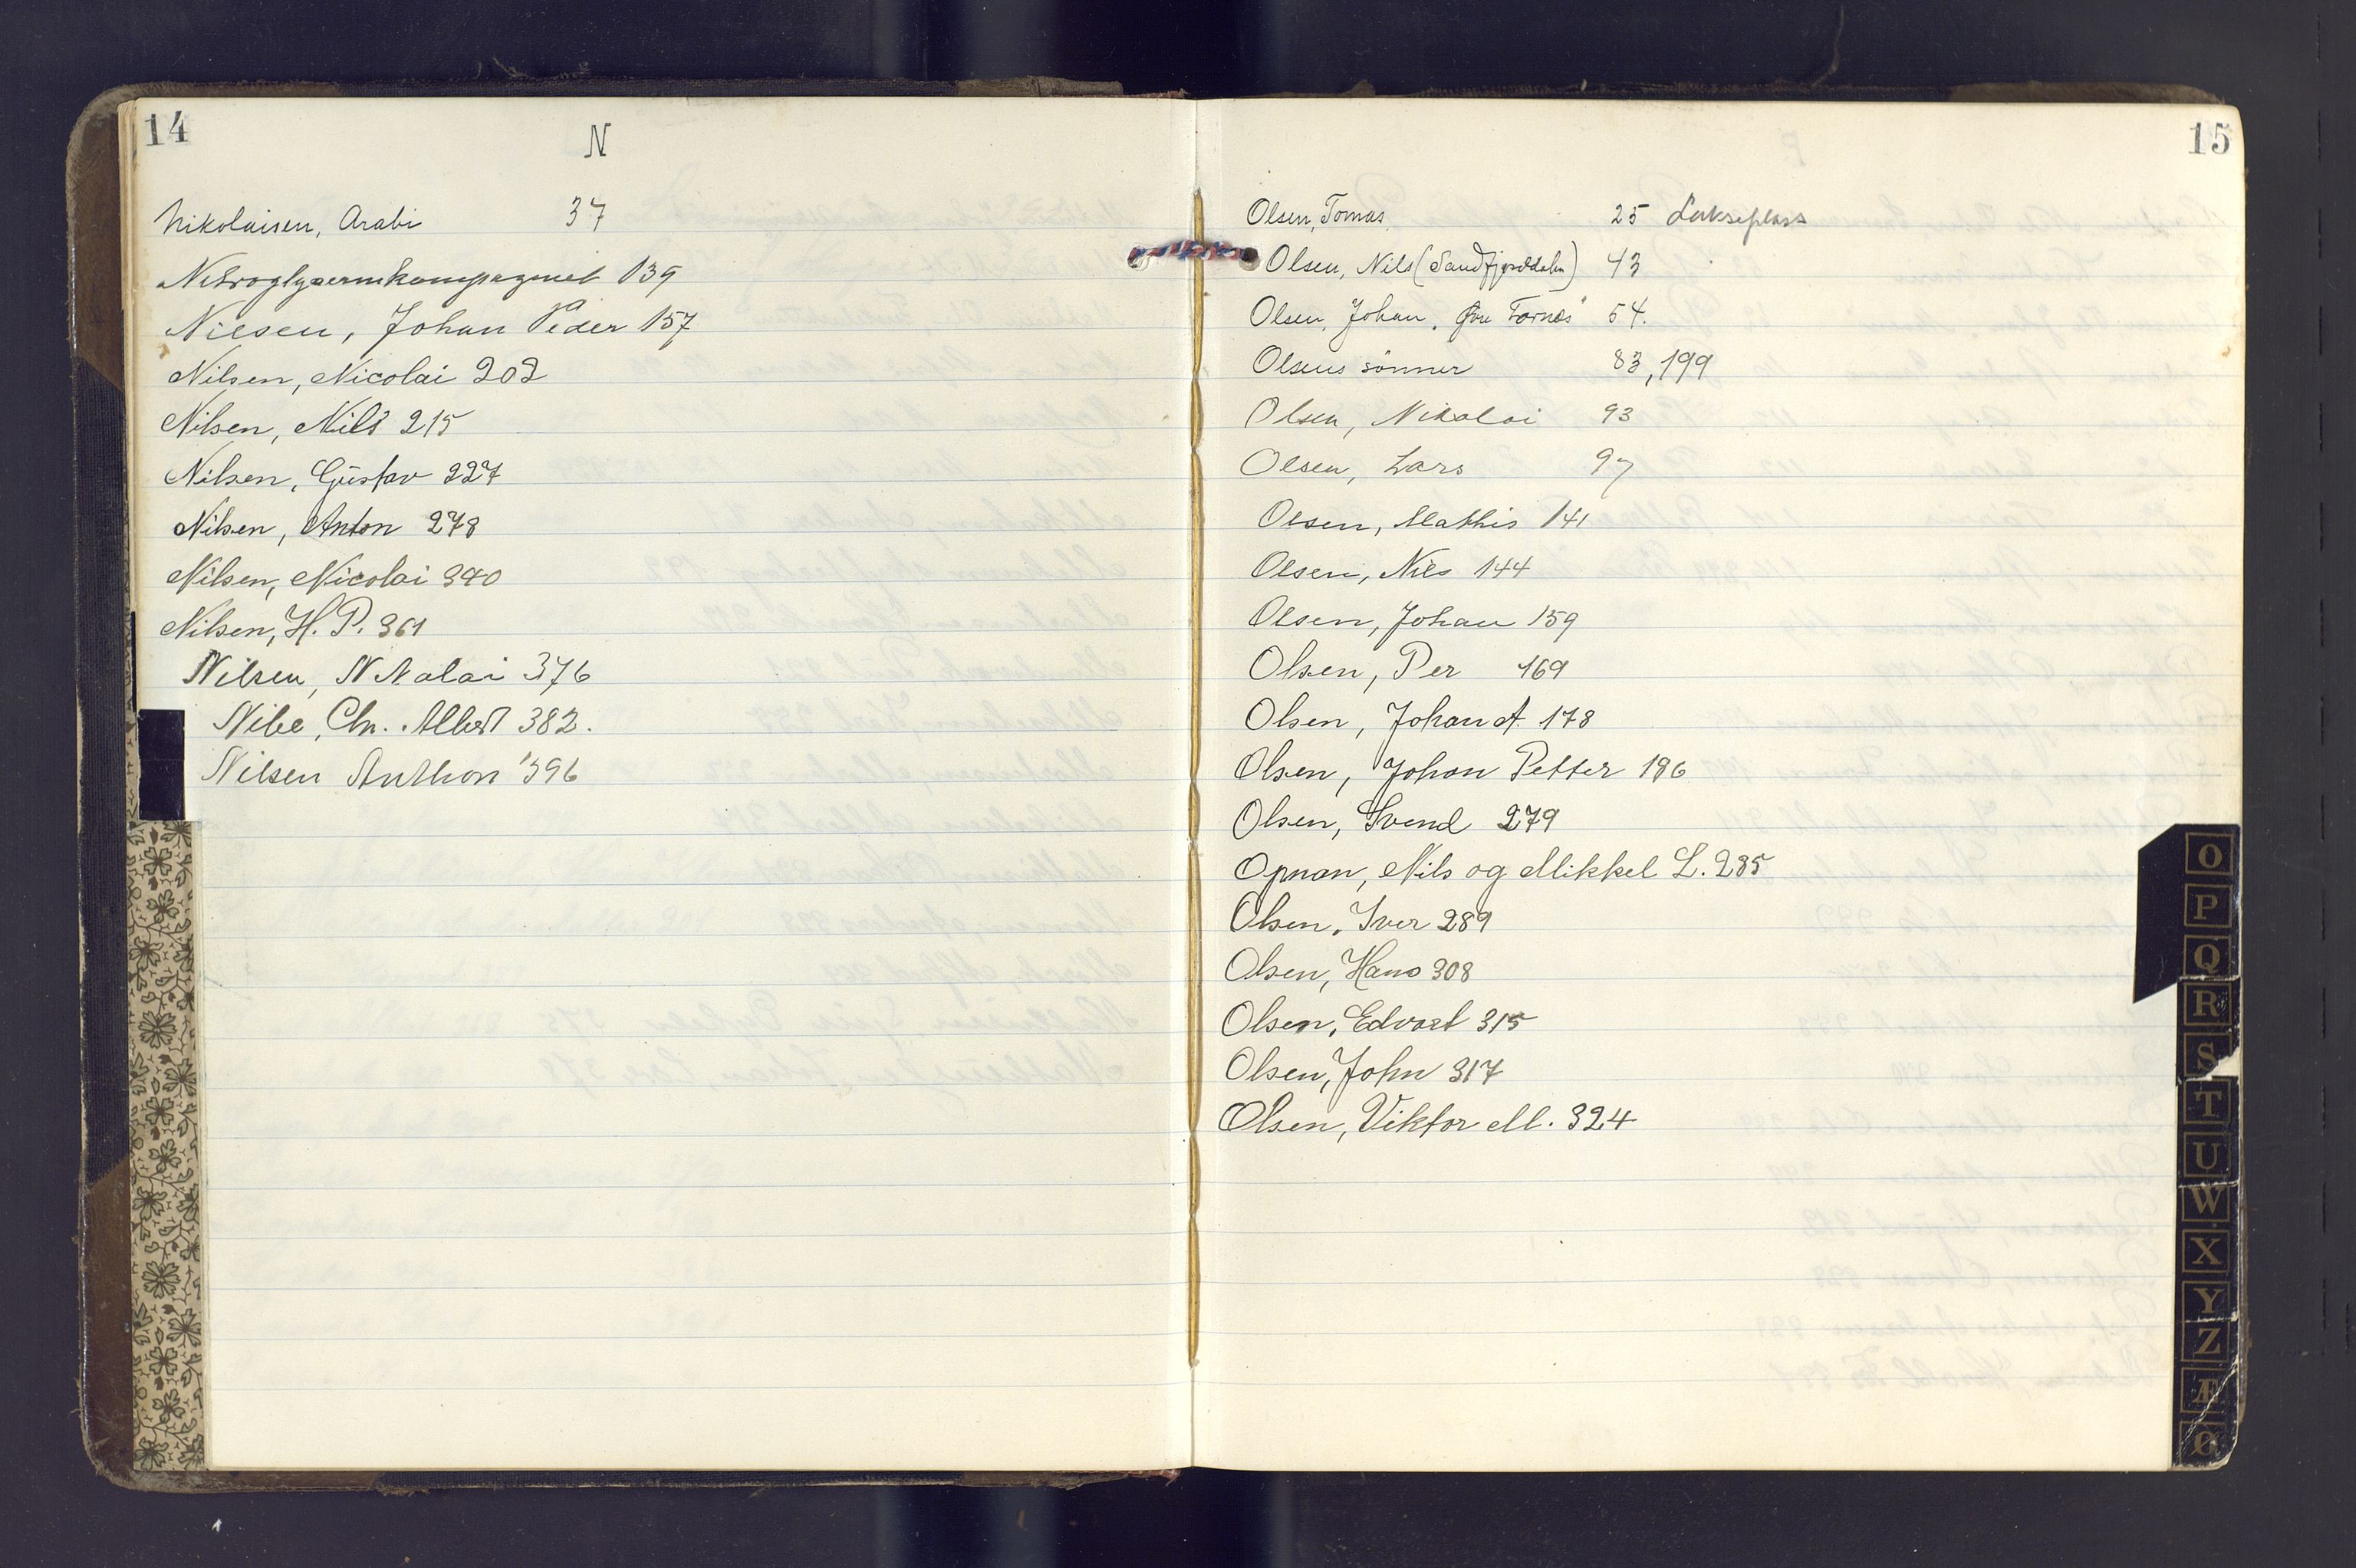 14
N
Nikolaisen, Arabi 37
Nitroglycerinkompagniet 139
Nilsen, Johan Peder 157
Nilsen, Nicolai 202
Nilsen, Nils 215
Nilsen, Gustav 227
Nilsen, Anton 278
Nilsen, Nicolai 340
Nilsen, H. P. 361
Nilsen, Nikolai 376
Nibe, Chr. Albert 382.
Nilsen Anthon 396
15
Olsen, Tomas 25 Lakseplass
Olsen, Nils (Sandfjorddalen) 43
Olsen, Johan, Øvre Tornes 54.
Olsens sönner 83, 199
Olsen, Nikolai 93
Olsen, Lars 97
Olsen, Mathis 141
Olsen, Nils 144
Olsen, Johan 159
Olsen, Per 169
Olsen, Johan A. 178
Olsen, Johan Petter 186
Olsen, Svend 279
Opman, Nils og Mikkel L. 285
Olsen, Iver 289
Olsen, Hans 308
Olsen, Edvart 315
Olsen, John 317
Olsen, Viktor M. 324
O
P
Q
R
S
T
U
W
X
Y
Z
Æ
Ø